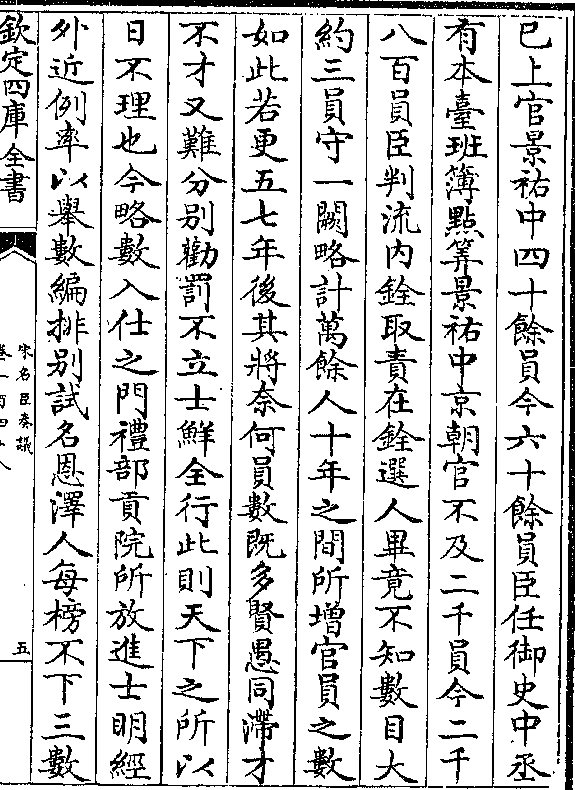 已上官景祐中四十餘員今六十餘員臣任御史中丞
有本臺班簿點筭景祐中京朝官不及二千員今二千
八百員臣判流内銓取責在銓選人畢竟不知數目大
約三員守一闕略計萬餘人十年之間所增官員之數
如此若更五七年後其將奈何員數既多賢愚同滯才
不才又難分别勸罰不立士鮮全行此則天下之所以
日不理也今略數入仕之門禮部貢院所放進士明經
外近例率以舉數編排别試名恩澤人每榜不下三數
欽定四庫全書
宋名臣奏議
五